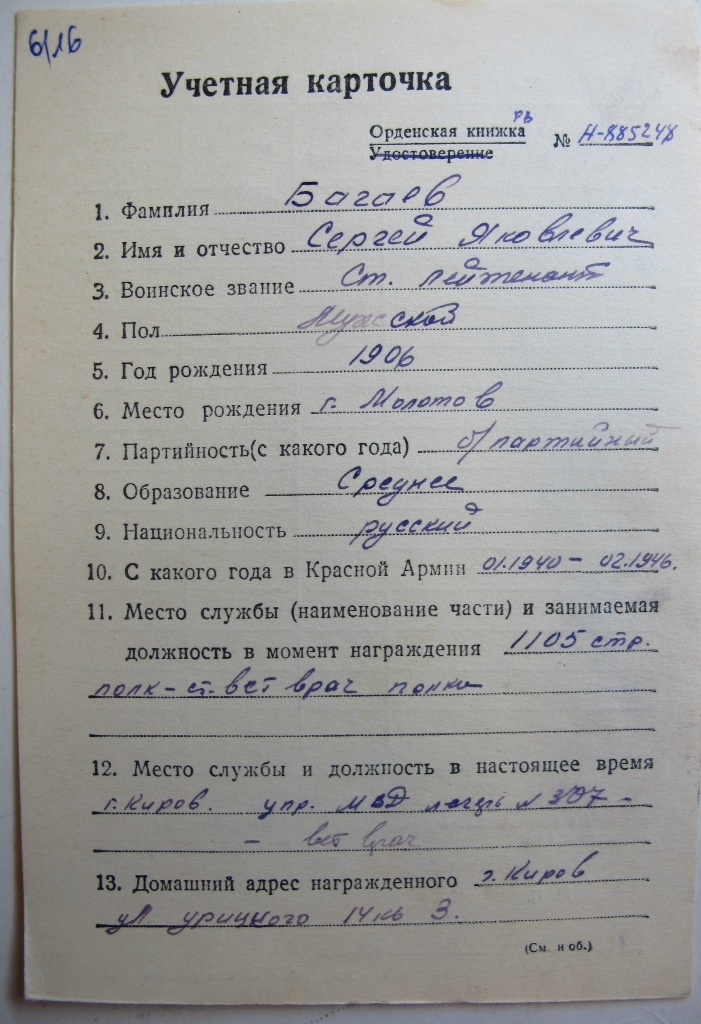 6/16
Учетная карточка
РВ
Орденская книжка № Н-885248
Удостоверение
1. Фамилия Багаев
2. Имя и отчество Сергей Яковлевич
3. Воинское звание Ст. лейтенант
4. Пол Мужской
5. Год рождения 1906
6. Место рождения г. Молотов
7. Партийность(с какого года) б/партийный
8. Образование Среднее
9. Национальность русский
10. С какого года в Красной Армии 01.1940 – 02.1946.
11. Место службы (наименование части) и занимаемая
должность в момент награждения 1105 стр.
полк – ст. вет врач полка
12. Место службы и должность в настоящее время
г. Киров. упр. МВД № 307 –
– вет врач
13. Домашний адрес награжденного г. Киров
ул урицкого 14 кв 3.
(См. н об.)